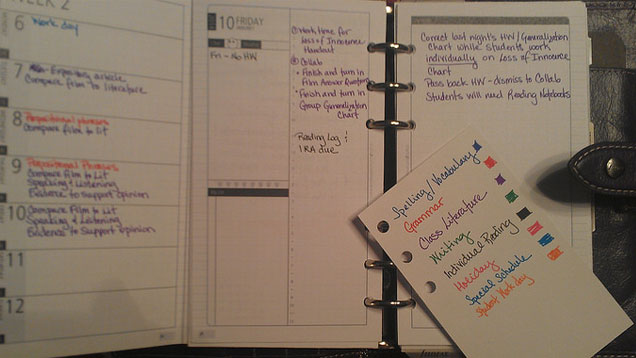 WEEK 2
6
Work day
7
Expository article
Compare film to literature
8
Prepositional phrases
Compare film to Lit
9
Prepositional Phrases
Compare Film to Lit
Speaking & Listening
Evidence to Support opinion
10
Compare Film to Lit
Speaking & Listening
Evidence to Support opinion
11
12
10 FRIDAY
Fri - No HW
① Work time for
Loss of Innocence
Handout
② Collab
• Finish and turn in
Film Answer Questions
• Finish and turn in
Group Generalization
Chart
Reading Log &
IRA due
Correct last night's HW/Generalization
Chart while students work
individually on Loss of Innocence
Chart
Pass back HW - dismiss to Collab
Students will need Reading Notebooks
Spelling/Vocabulary
Grammar
Class Literature
Writing
Individual Reading
Holiday
Special Schedule
Student Work day